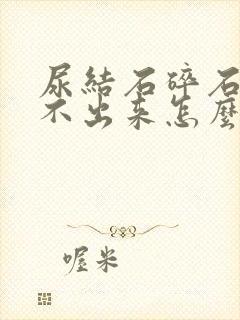 尿結石碎石
不出来怎麽
喔米